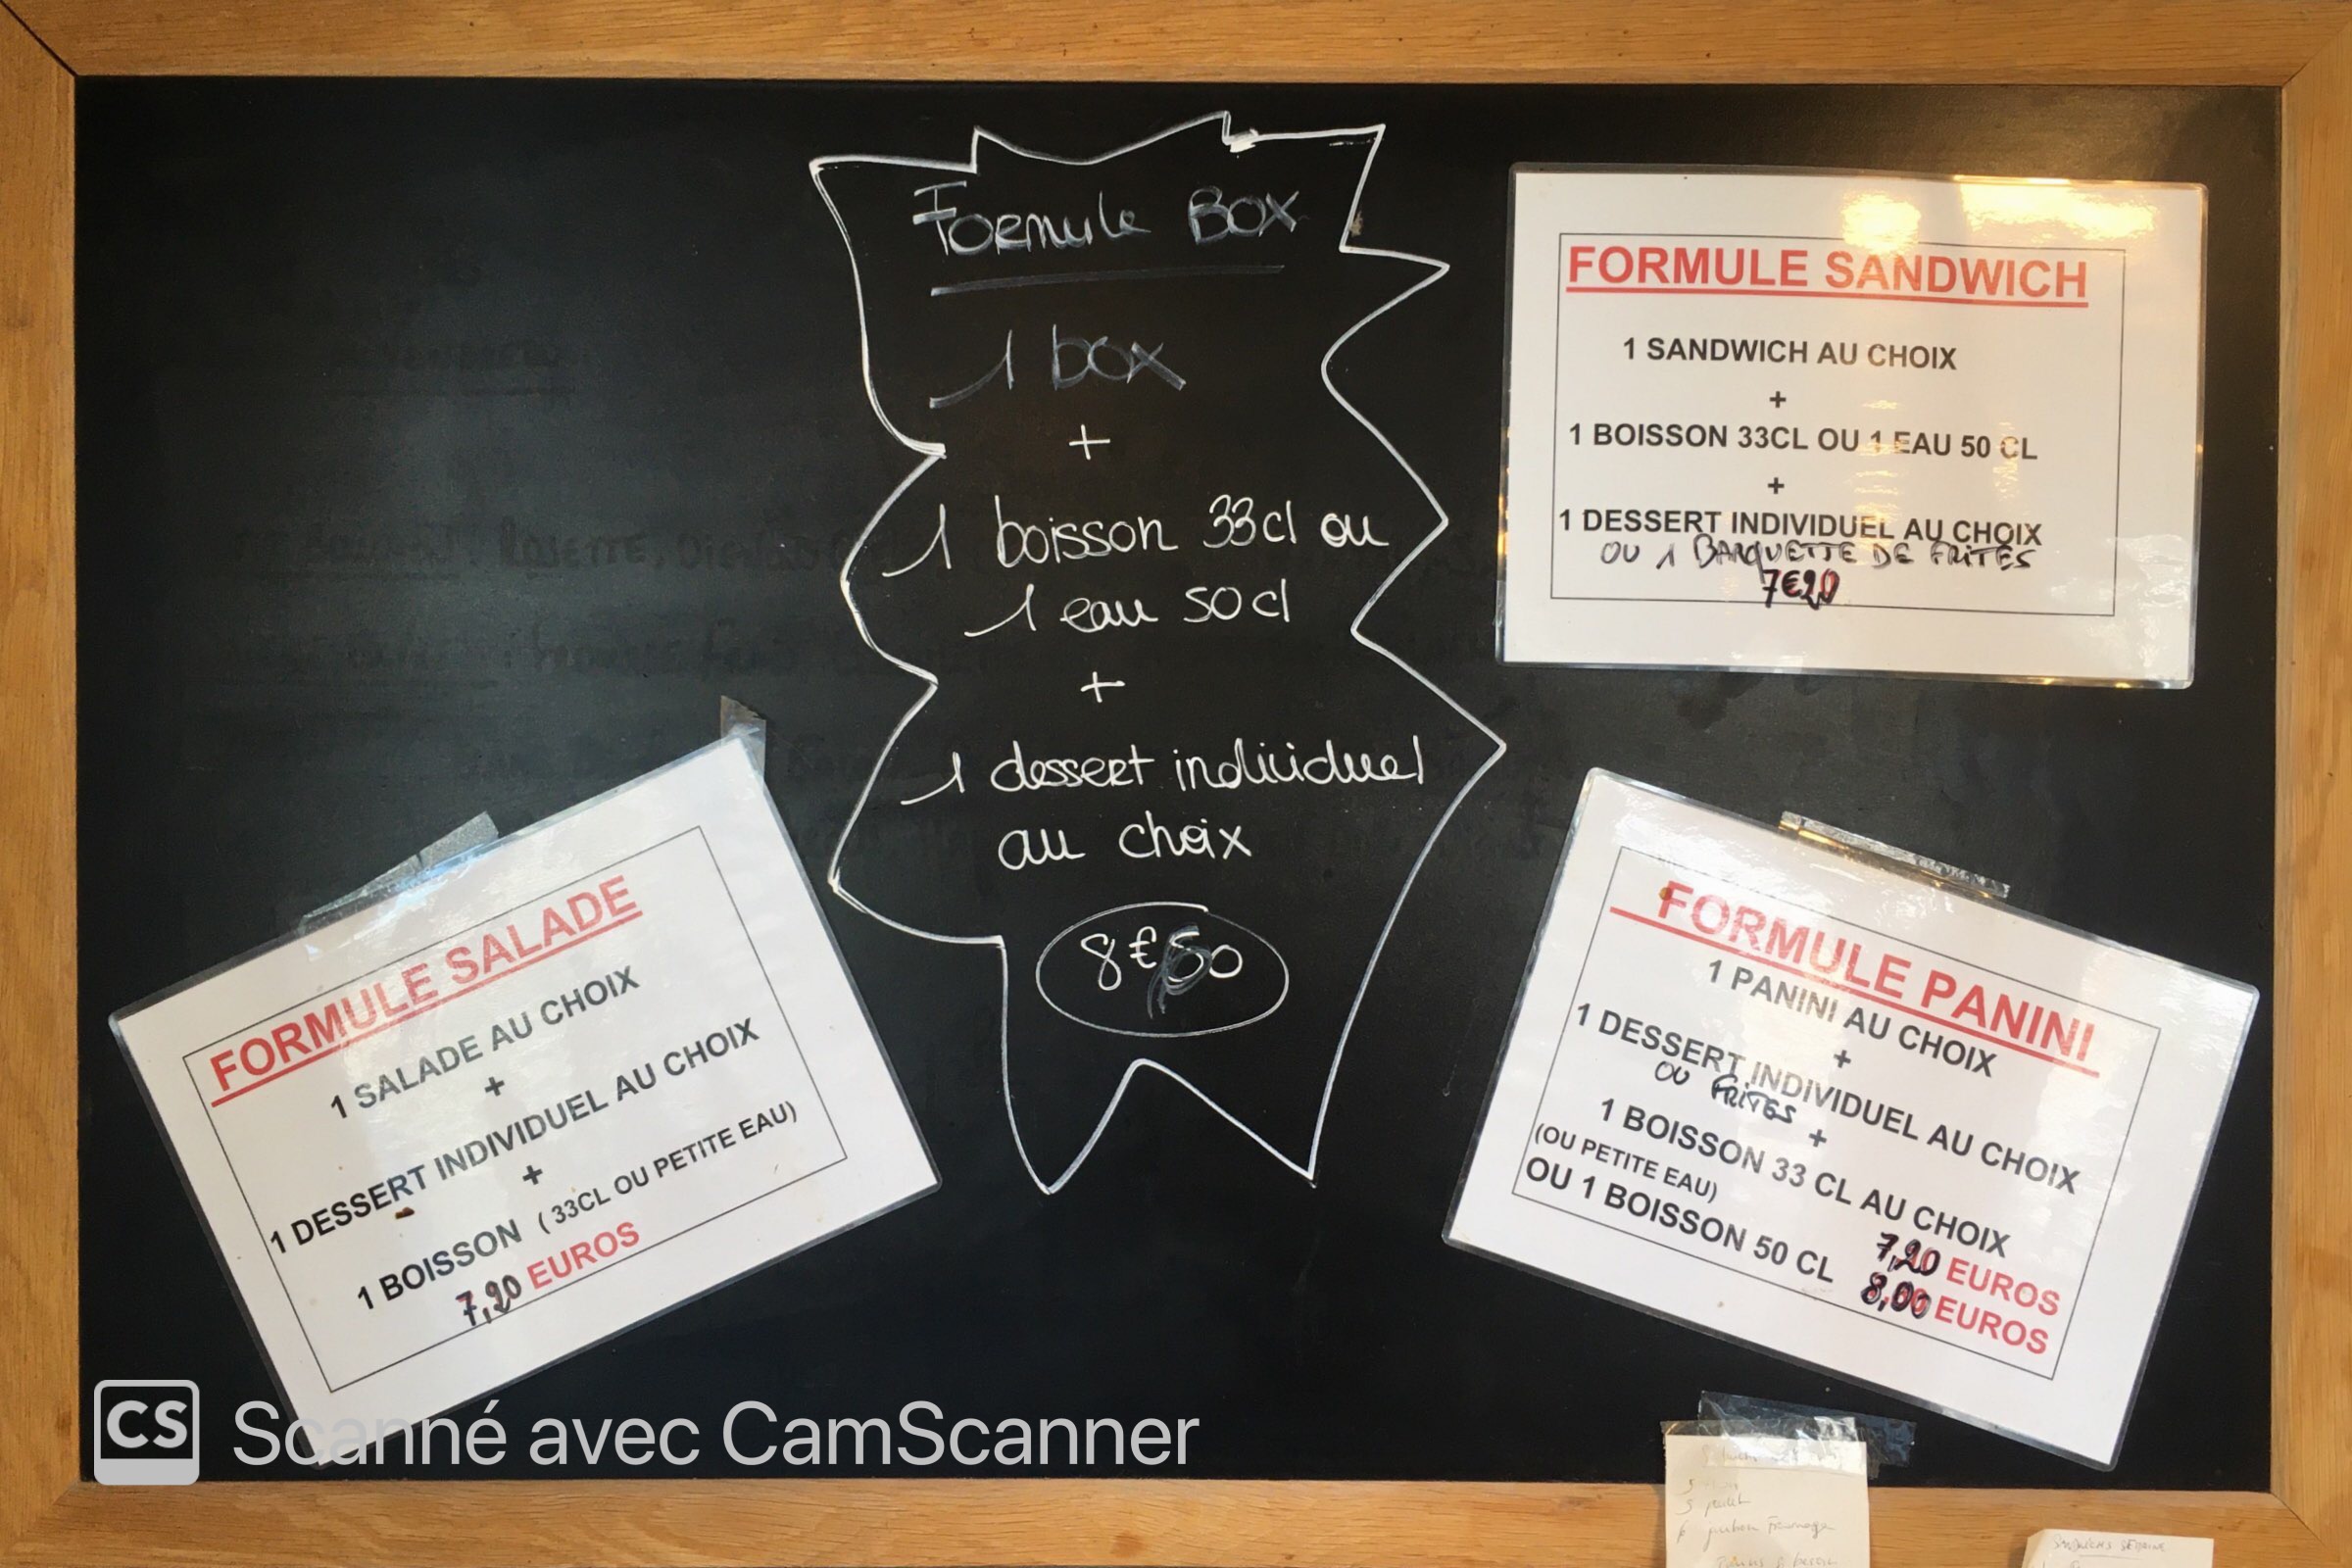 Formule Box
1 box
+
1 boisson 33cl ou
1 eau 50cl
+
1 dessert individuel
au choix
8€50
FORMULE SANDWICH
1 SANDWICH AU CHOIX
+
1 BOISSON 33CL OU 1 EAU 50 CL
+
1 DESSERT INDIVIDUEL AU CHOIX
OU 1 BARQUETTE DE FRITES
7€20
FORMULE SALADE
1 SALADE AU CHOIX
+
1 DESSERT INDIVIDUEL AU CHOIX
+
1 BOISSON (33CL OU PETITE EAU)
7,20 EUROS
FORMULE PANINI
1 PANINI AU CHOIX
+
1 DESSERT INDIVIDUEL AU CHOIX
OU FRITES
+
1 BOISSON 33 CL AU CHOIX
(OU PETITE EAU)
7,20 EUROS
OU 1 BOISSON 50 CL 8,00 EUROS
CS Scanné avec CamScanner